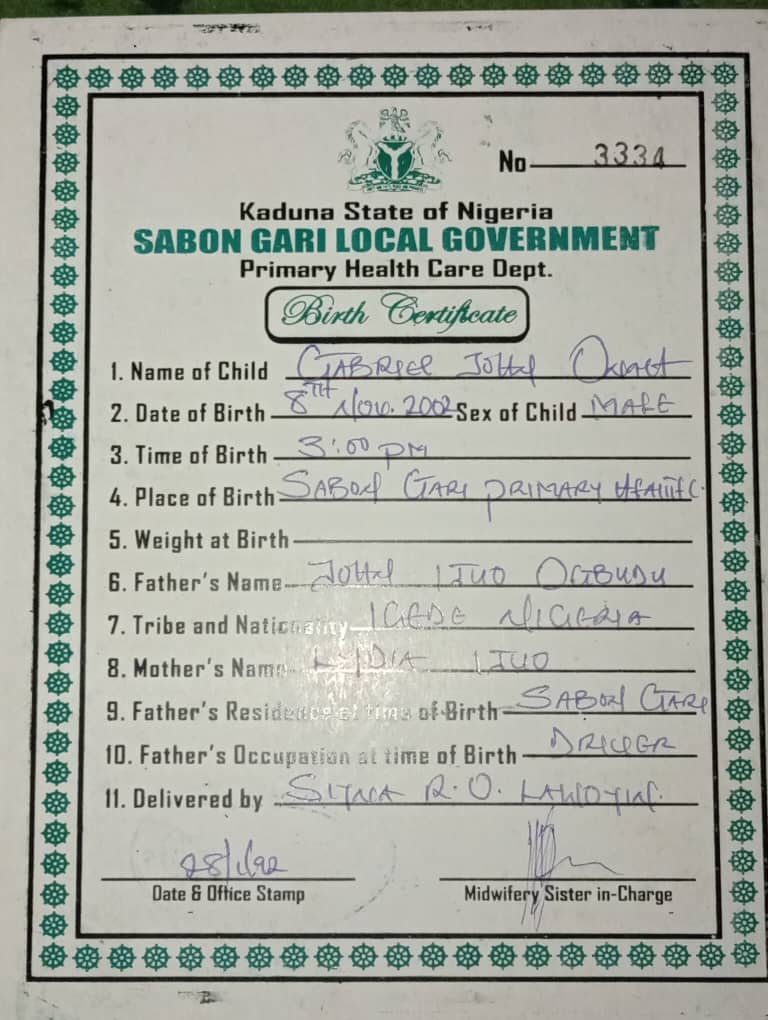 No 3334
Kaduna State of Nigeria
SABON GARI LOCAL GOVERNMENT
Primary Health Care Dept.
Birth Certificate
1. Name of Child GABRIEL JOHN
2. Date of Birth 8TH NOV. 2002 Sex of Child MALE
3. Time of Birth 3:00 PM
4. Place of Birth SABON GARI PRIMARY HEALTH C.
5. Weight at Birth
6. Father's Name JOHN IJUO OGBUDU
7. Tribe and Nationality IGEDE NIGERIA
8. Mother's Name LYDIA IJUO
9. Father's Residence at time of Birth SABON GARI
10. Father's Occupation at time of Birth DRIVER
11. Delivered by R. O.
Date & Office Stamp
Midwifery Sister in-Charge